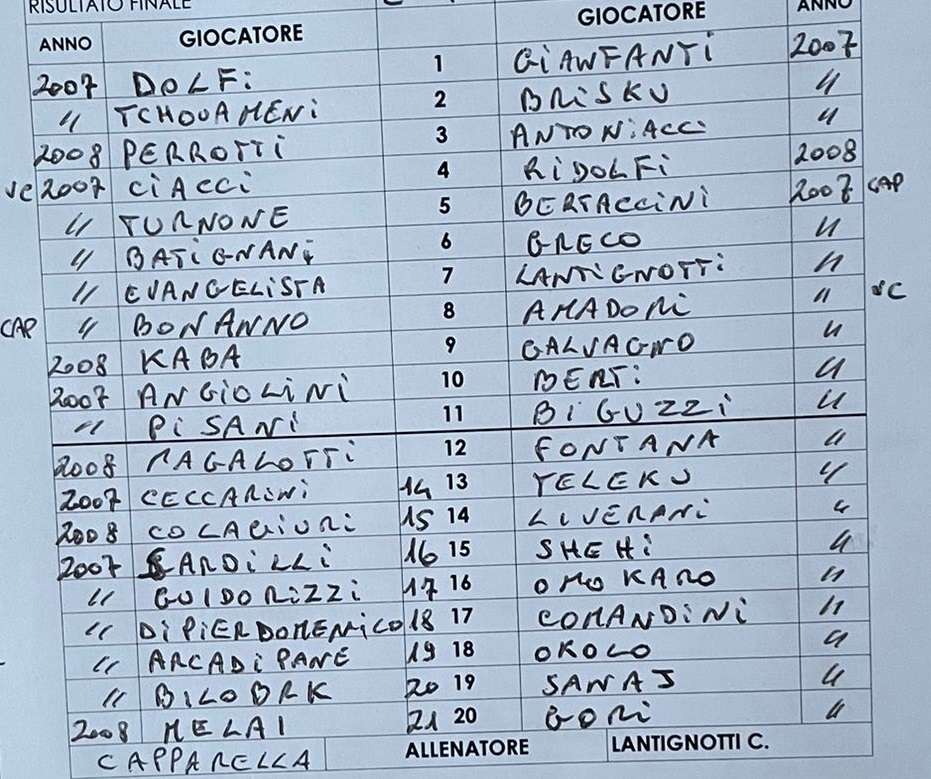 RISULTATO FINALE
ANNO GIOCATORE GIOCATORE ANNO
2007 DOLFI 1 GIANFANTI 2007
" TCHOUAMENI 2 BRISKU "
2008 PERROTTI 3 ANTONIACCI "
VC 2007 CIACCI 4 RIDOLFI 2008
" TURNONE 5 BERTACCINI 2007 CAP
" BATIGNANI 6 GRECO "
" EVANGELISTA 7 LANTIGNOTTI "
CAP " BONANNO 8 AMADORI " VC
2008 KABA 9 GALVAGNO "
2007 ANGIOLINI 10 BERTI "
" PISANI 11 BIGUZZI "
2008 MAGALOTTI 12 FONTANA "
2007 CECCARINI 14 13 TELEKU "
2008 COLAGIURI 15 14 LIVERANI "
2007 SARDILLI 16 15 SHEHI "
" GUIDORIZZI 17 16 OMOKARO "
" DI PIERDOMENICO 18 17 COMANDINI "
" ARCADIPANE 19 18 OKOLO "
" BILOBRK 20 19 SANAJ "
2008 MELAI 21 20 GORI "
CAPPARELLA ALLENATORE LANTIGNOTTI C.